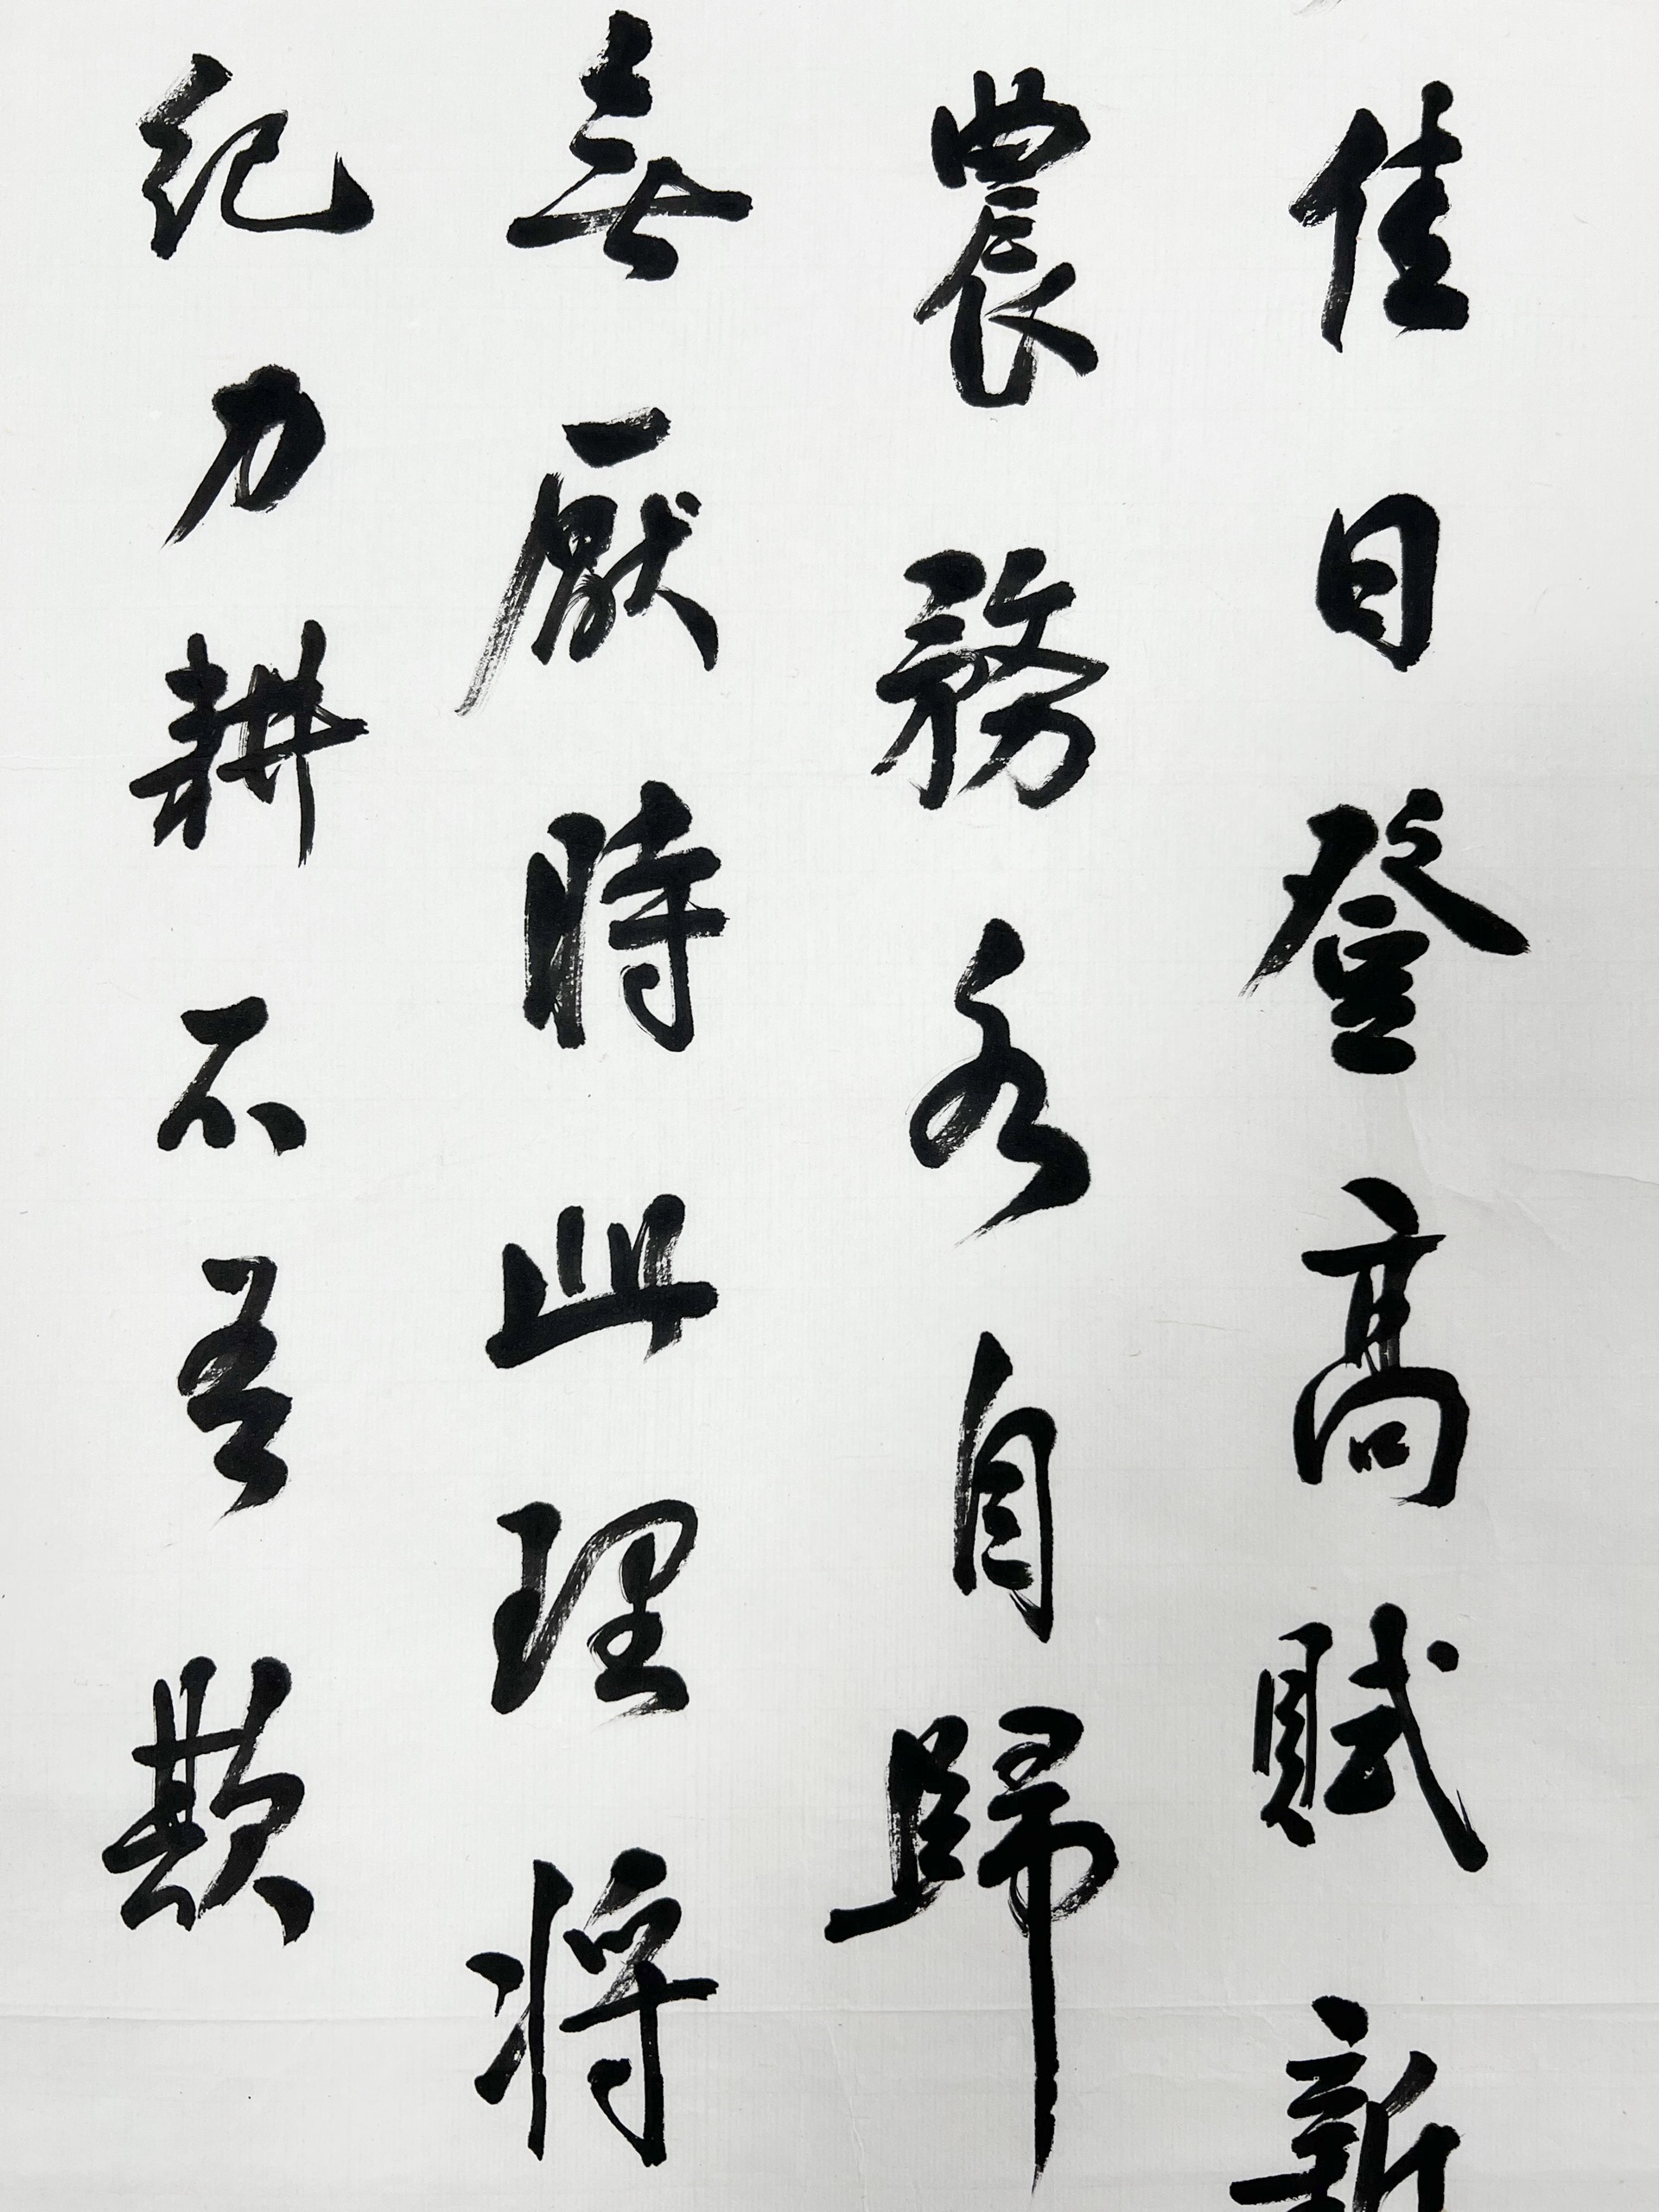 佳日登高賦新
農務各自歸
無厭時此理將
紀力耕不吾欺